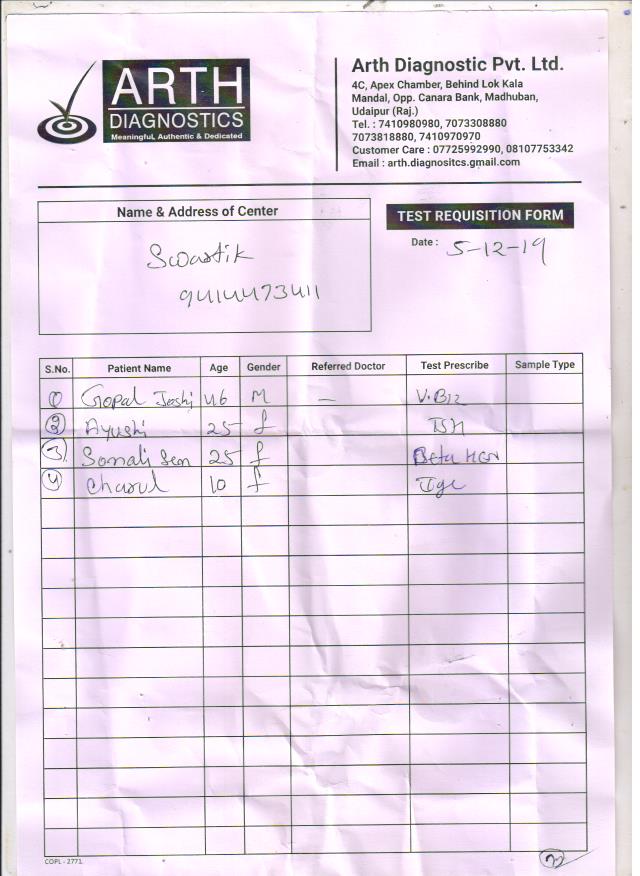 ARTH
DIAGNOSTICS
Meaningful, Authentic & Dedicated
Arth Diagnostic Pvt. Ltd.
4C, Apex Chamber, Behind Lok Kala
Mandal, Opp. Canara Bank, Madhuban,
Udaipur (Raj.)
Tel. : 7410980980, 7073308880
7073818880, 7410970970
Customer Care : 07725992990, 08107753342
Email : arth.diagnositcs.gmail.com
Name & Address of Center
Swastik
9414473411
TEST REQUISITION FORM
Date : 5-12-19
S.No. Patient Name Age Gender Referred Doctor Test Prescribe Sample Type
1 Gopal Joshi 46 M — V.B12
2 Ayushi 25 f TSH
3 Sonali Sen 25 f Beta HCG
4 Charul 10 f Ige
COPL - 2771